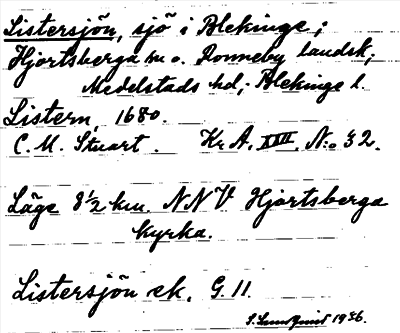 Listersjön, sjö i Blekinge;
Hjortsberga sn o. Ronneby landsk;
Medelstads hd; Blekinge l.
Listern, 1680.
C. M. Stuart. Kr A. XXII. N:o 32.
Läge 8 1/2 km. NNV Hjortsberga
kyrka.
Listersjön ek. G. 11.
S. Lundquist 1936.